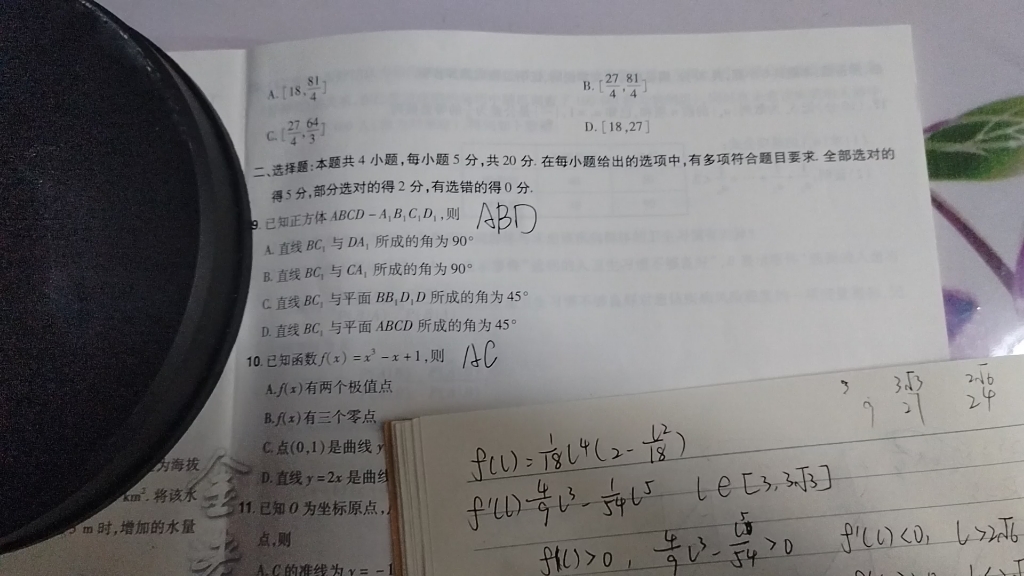 A.[18,81/4]
B.[27/4,81/4]
C.[27/4,64/3]
D.[18,27]
二、选择题:本题共4小题,每小题5分,共20分.在每小题给出的选项中,有多项符合题目要求.全部选对的
得5分,部分选对的得2分,有选错的得0分.
9.已知正方体ABCD-A₁B₁C₁D₁,则 ABD
A.直线BC₁与DA₁所成的角为90°
B.直线BC₁与CA₁所成的角为90°
C.直线BC₁与平面BB₁D₁D所成的角为45°
D.直线BC₁与平面ABCD所成的角为45°
10.已知函数f(x)=x³-x+1,则 AC
A.f(x)有两个极值点
B.f(x)有三个零点
C.点(0,1)是曲线y
D.直线y=2x是曲线
11.已知O为坐标原点,
点,则
A.C的准线为y=-1
为海拔
km².将该水
m时,增加的水量
3 3√3 2√6
9 27 24
f(l)=1/18 l⁴(2-l²/18)
f'(l) 4/9 l³-1/54 l⁵ l∈[3,3√3]
f'(l)>0, 4/9 l³-l⁵/54>0 f'(l)<0, l>2√6